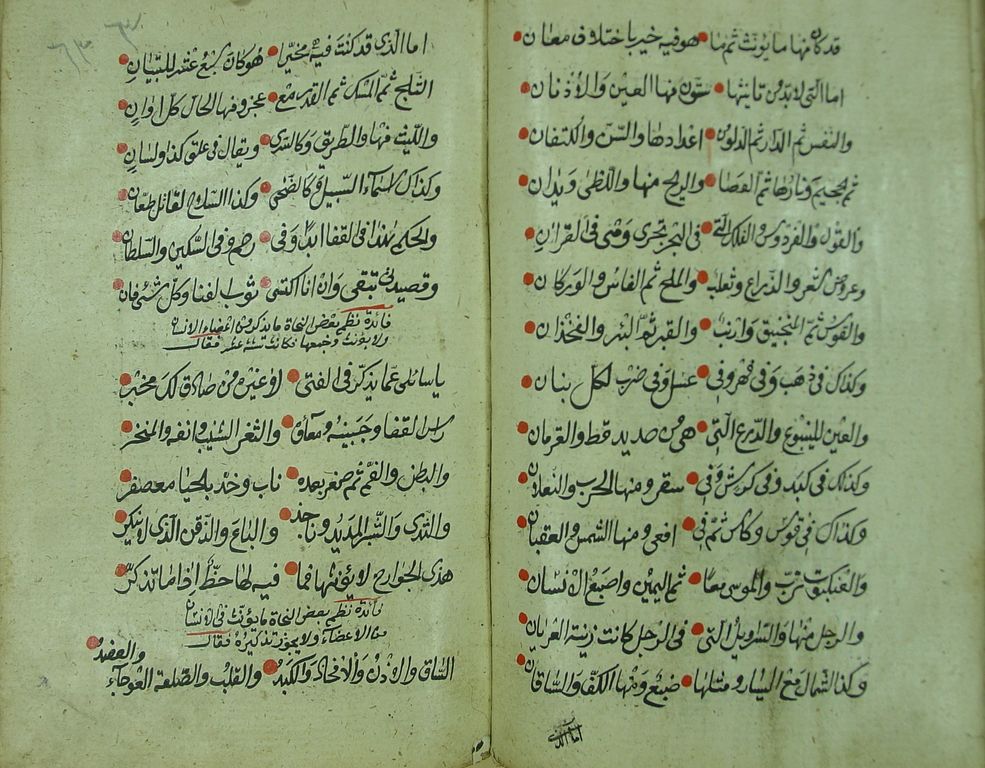 قد كان منها ما يؤنث ثم ما هو فيه خير باختلاف معان
اما التى لا بد من تانيثها ستون منها العين والاذنان
والنفس ثم الدار ثم الدلو من اعدادها والسن والكتفان
ثم جحيم ونارها ثم العصا والريح منها واللظى ويدان
والغول والفردوس والفلك التى فى البحر تجرى وهى فى القران
وعروض شعر والذراع وثعلب والملح ثم الفاس والوركان
والقوس ثم المنجنيق وارنب والقبر ثم البئر والفخذان
وكذاك فى ذهب وفى فهر وفى عسل وفى ضرب لكل بنان
والعين للينبوع والدرع التى هى من حديد قط والقرمان
وكذلك فى كبد وفى كرش وفى سقر ومنها الحرب والنعلان
وكذاك فى قوس وكاس ثم فى افعى ومنها الشمس والعقبان
والعنكبوت تدب والموسى معا ثم اليمين واصبع الانسان
والرجل منها والسراويل التى فى الرجل كانت زينة العريان
وكذا الشمال مع اليسار ومثلها ضبع ومنها الكف والساقان
اما الذى
٦٣ ٦٣
اما الذى قد كنت فيه مخيرا هو كان سبع عشر للتبيان
الثلج ثم المسك ثم القدر مع عجز ومنها الحال كل اوان
والليت منها والطريق وكالسرى ويقال فى عنق كذا ولسان
وكذاك اسماء السبيل وكالضحى وكذا السلاح لقاتل طعان
والحكم هذا فى القفا ابدا وفى رحم وفى السكين والسلطان
وقصيدتى تبقى وانى انا اكتسى ثوب الفنا وكل شئ فان
فائدة نظم بعض النحاة ما يذكر من اعضاء الانسان
ولا يؤنث وجمعها فكانت ستة عشر فقال
يا سائلى عما يذكر فى الفتى لا غير من صادق لك مخبر
راس القفا وجبينه ومعاؤه والثغر الشيب وانفه والمنخر
والبطن والفم ثم صغر بعده ناب وخد بالحيا معصفر
والثدى والشبر المديد وناجذ والباع والذقن الذى لا ينكر
هذى الجوارح لا يؤنثها فما فيه لها حظ اذا ما تذكر
فائدة نظم بعض النحاة ما يؤنث فى الانسان
من الاعضاء ولا يجوز تذكيره فقال
الساق والاذن والافخاذ والكبد والقلب والضلعة العوجاء والعضد